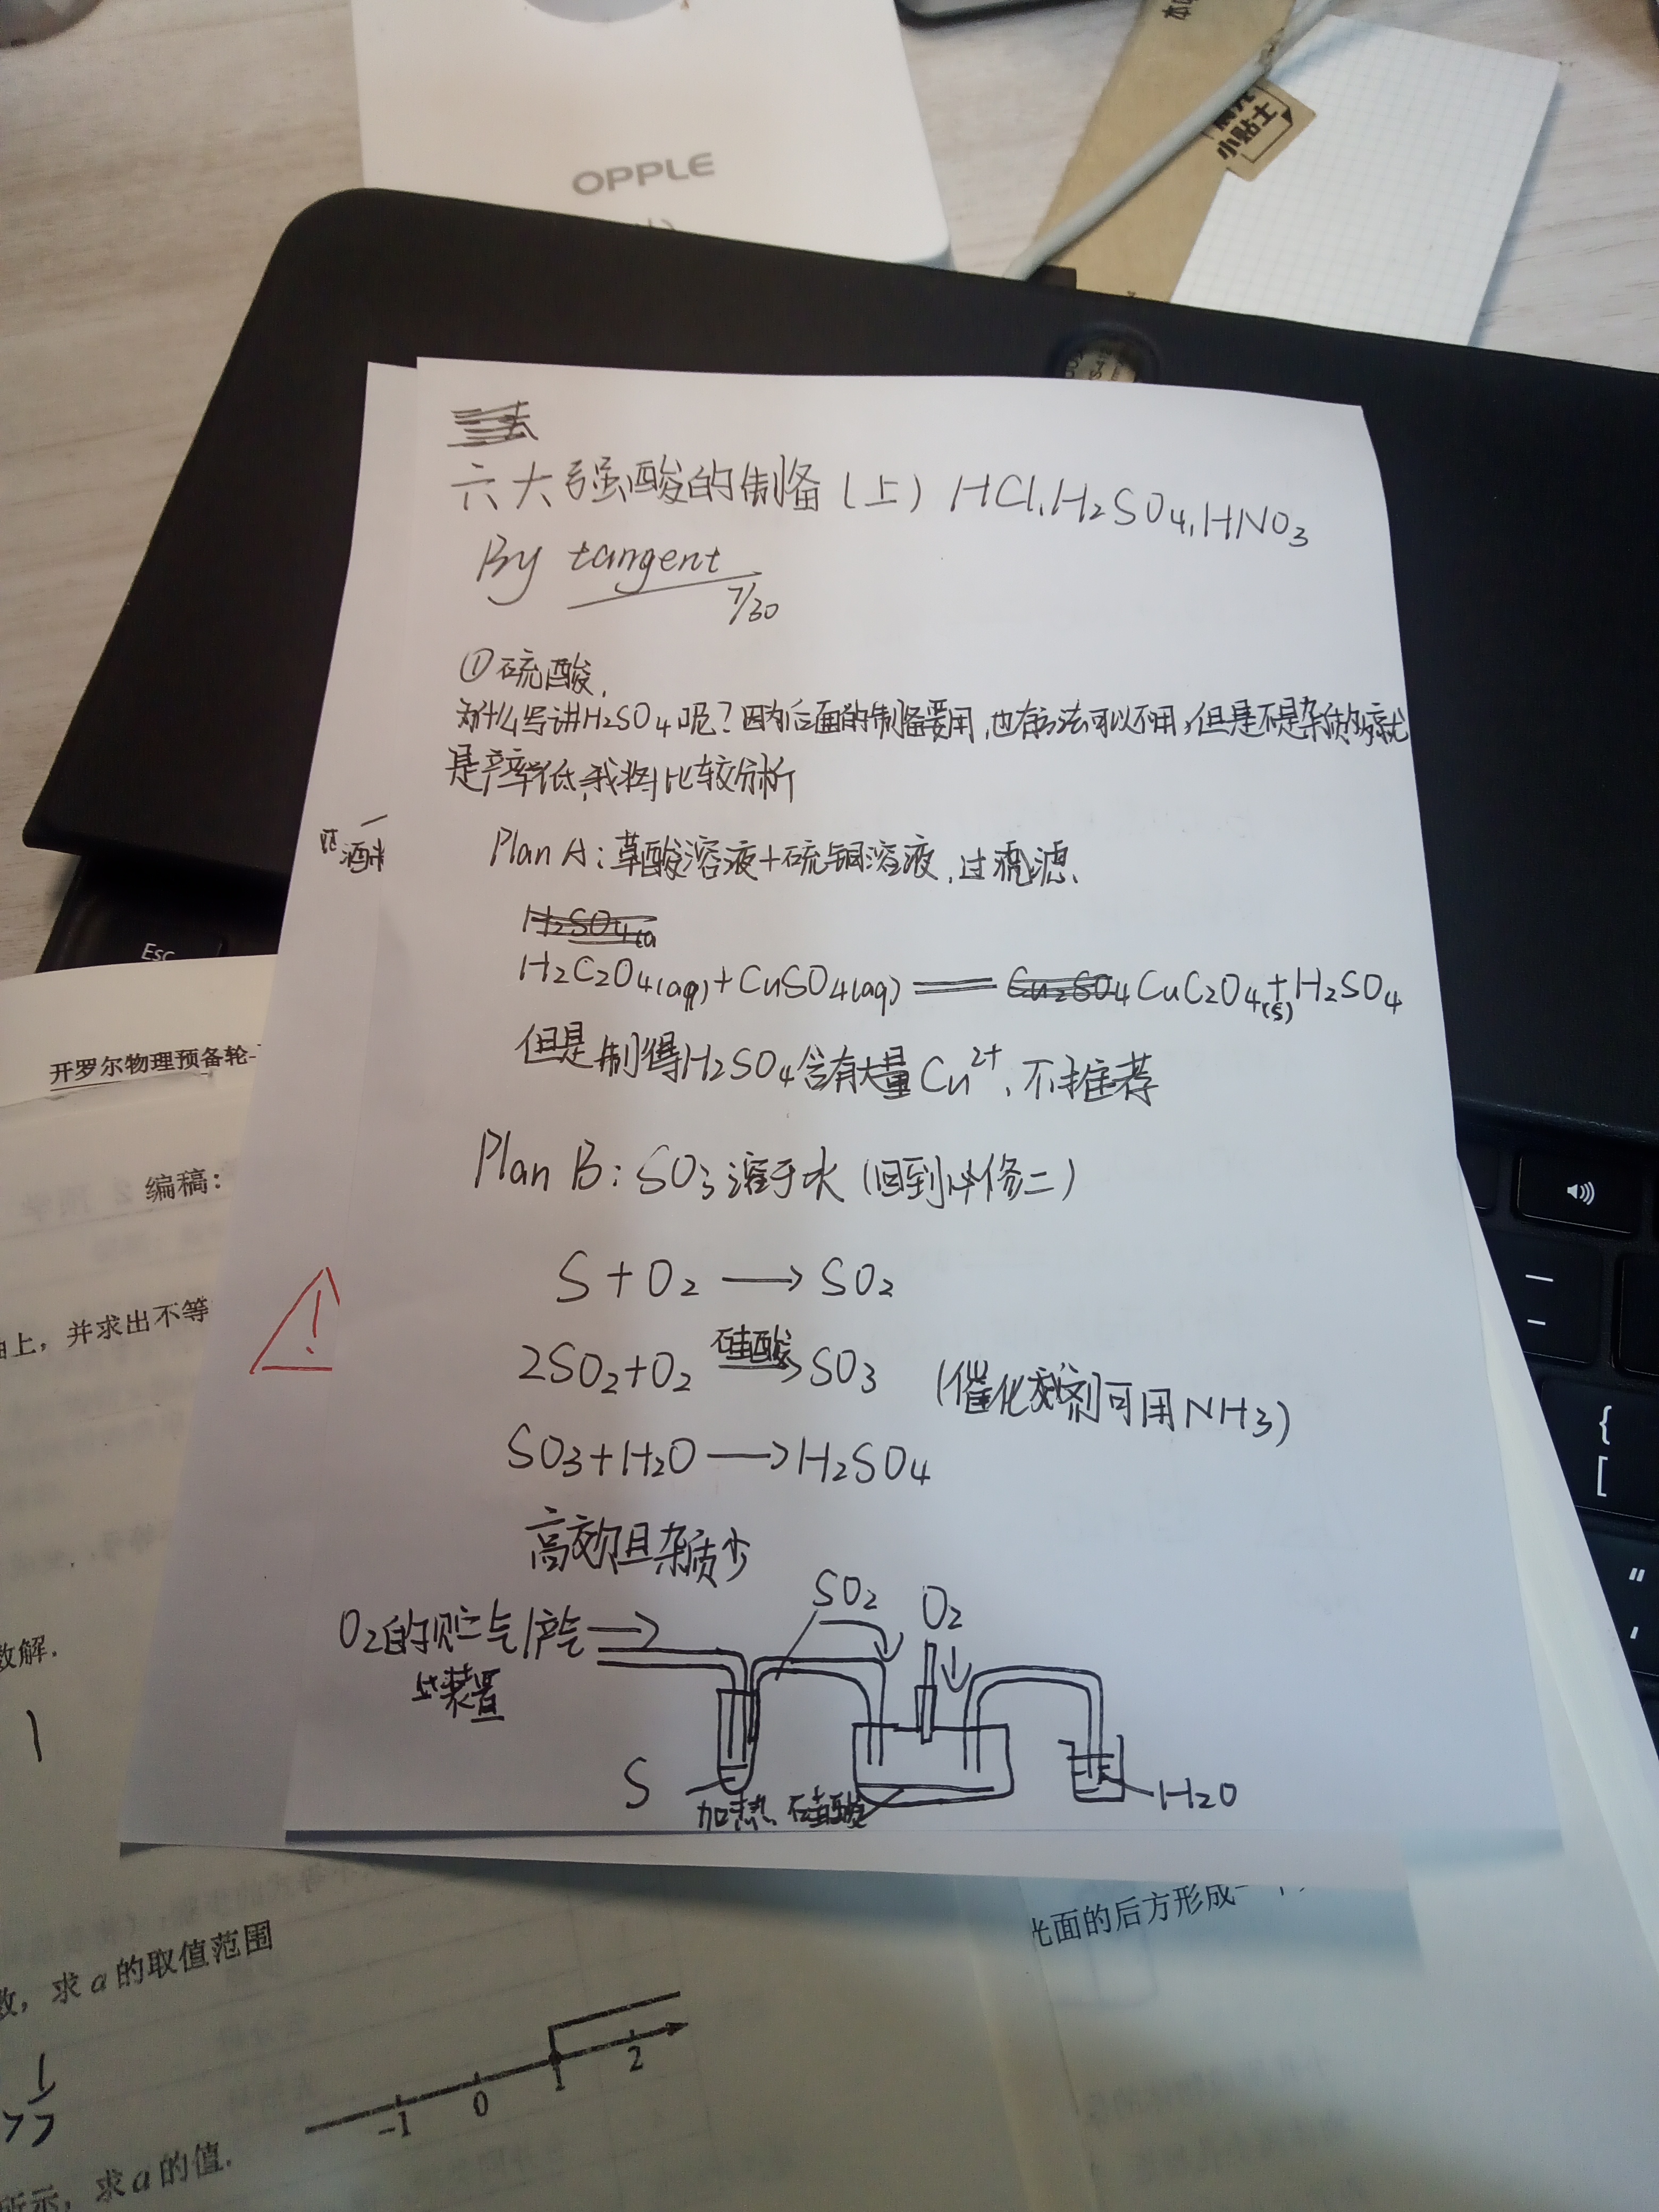 OPPLE
小贴士
六大强酸的制备(上) HCl,H₂SO₄,HNO₃
By tangent
7/30
①硫酸,
为什么写讲H₂SO₄呢?因为后面的制备要用,也有方法可以不用,但是不是杂质多就
是产率低,我将比较分析
酒精
Plan A:草酸溶液+硫铜溶液,过滤.
H₂SO₄(a
H₂C₂O₄(aq)+CuSO₄(aq)══Cu₂SO₄ CuC₂O₄(s)+H₂SO₄
但是制得H₂SO₄含有大量Cu²⁺,不推荐
Plan B:SO₃溶于水(回到必修二)
S+O₂⟶SO₂
2SO₂+O₂ 硅酸⟶SO₃ (催化剂可用NH₃)
SO₃+H₂O⟶H₂SO₄
高效且杂质少
!
SO₂
O₂
O₂的贮气/产气
装置
S
加热
硅酸
H₂O
Esc
开罗尔物理预备轮-
编稿:
上,并求出不等
数解.
1
数,求a的取值范围
-1 0 1 2
所示,求a的值.
光面的后方形成一个
{
[
"
'